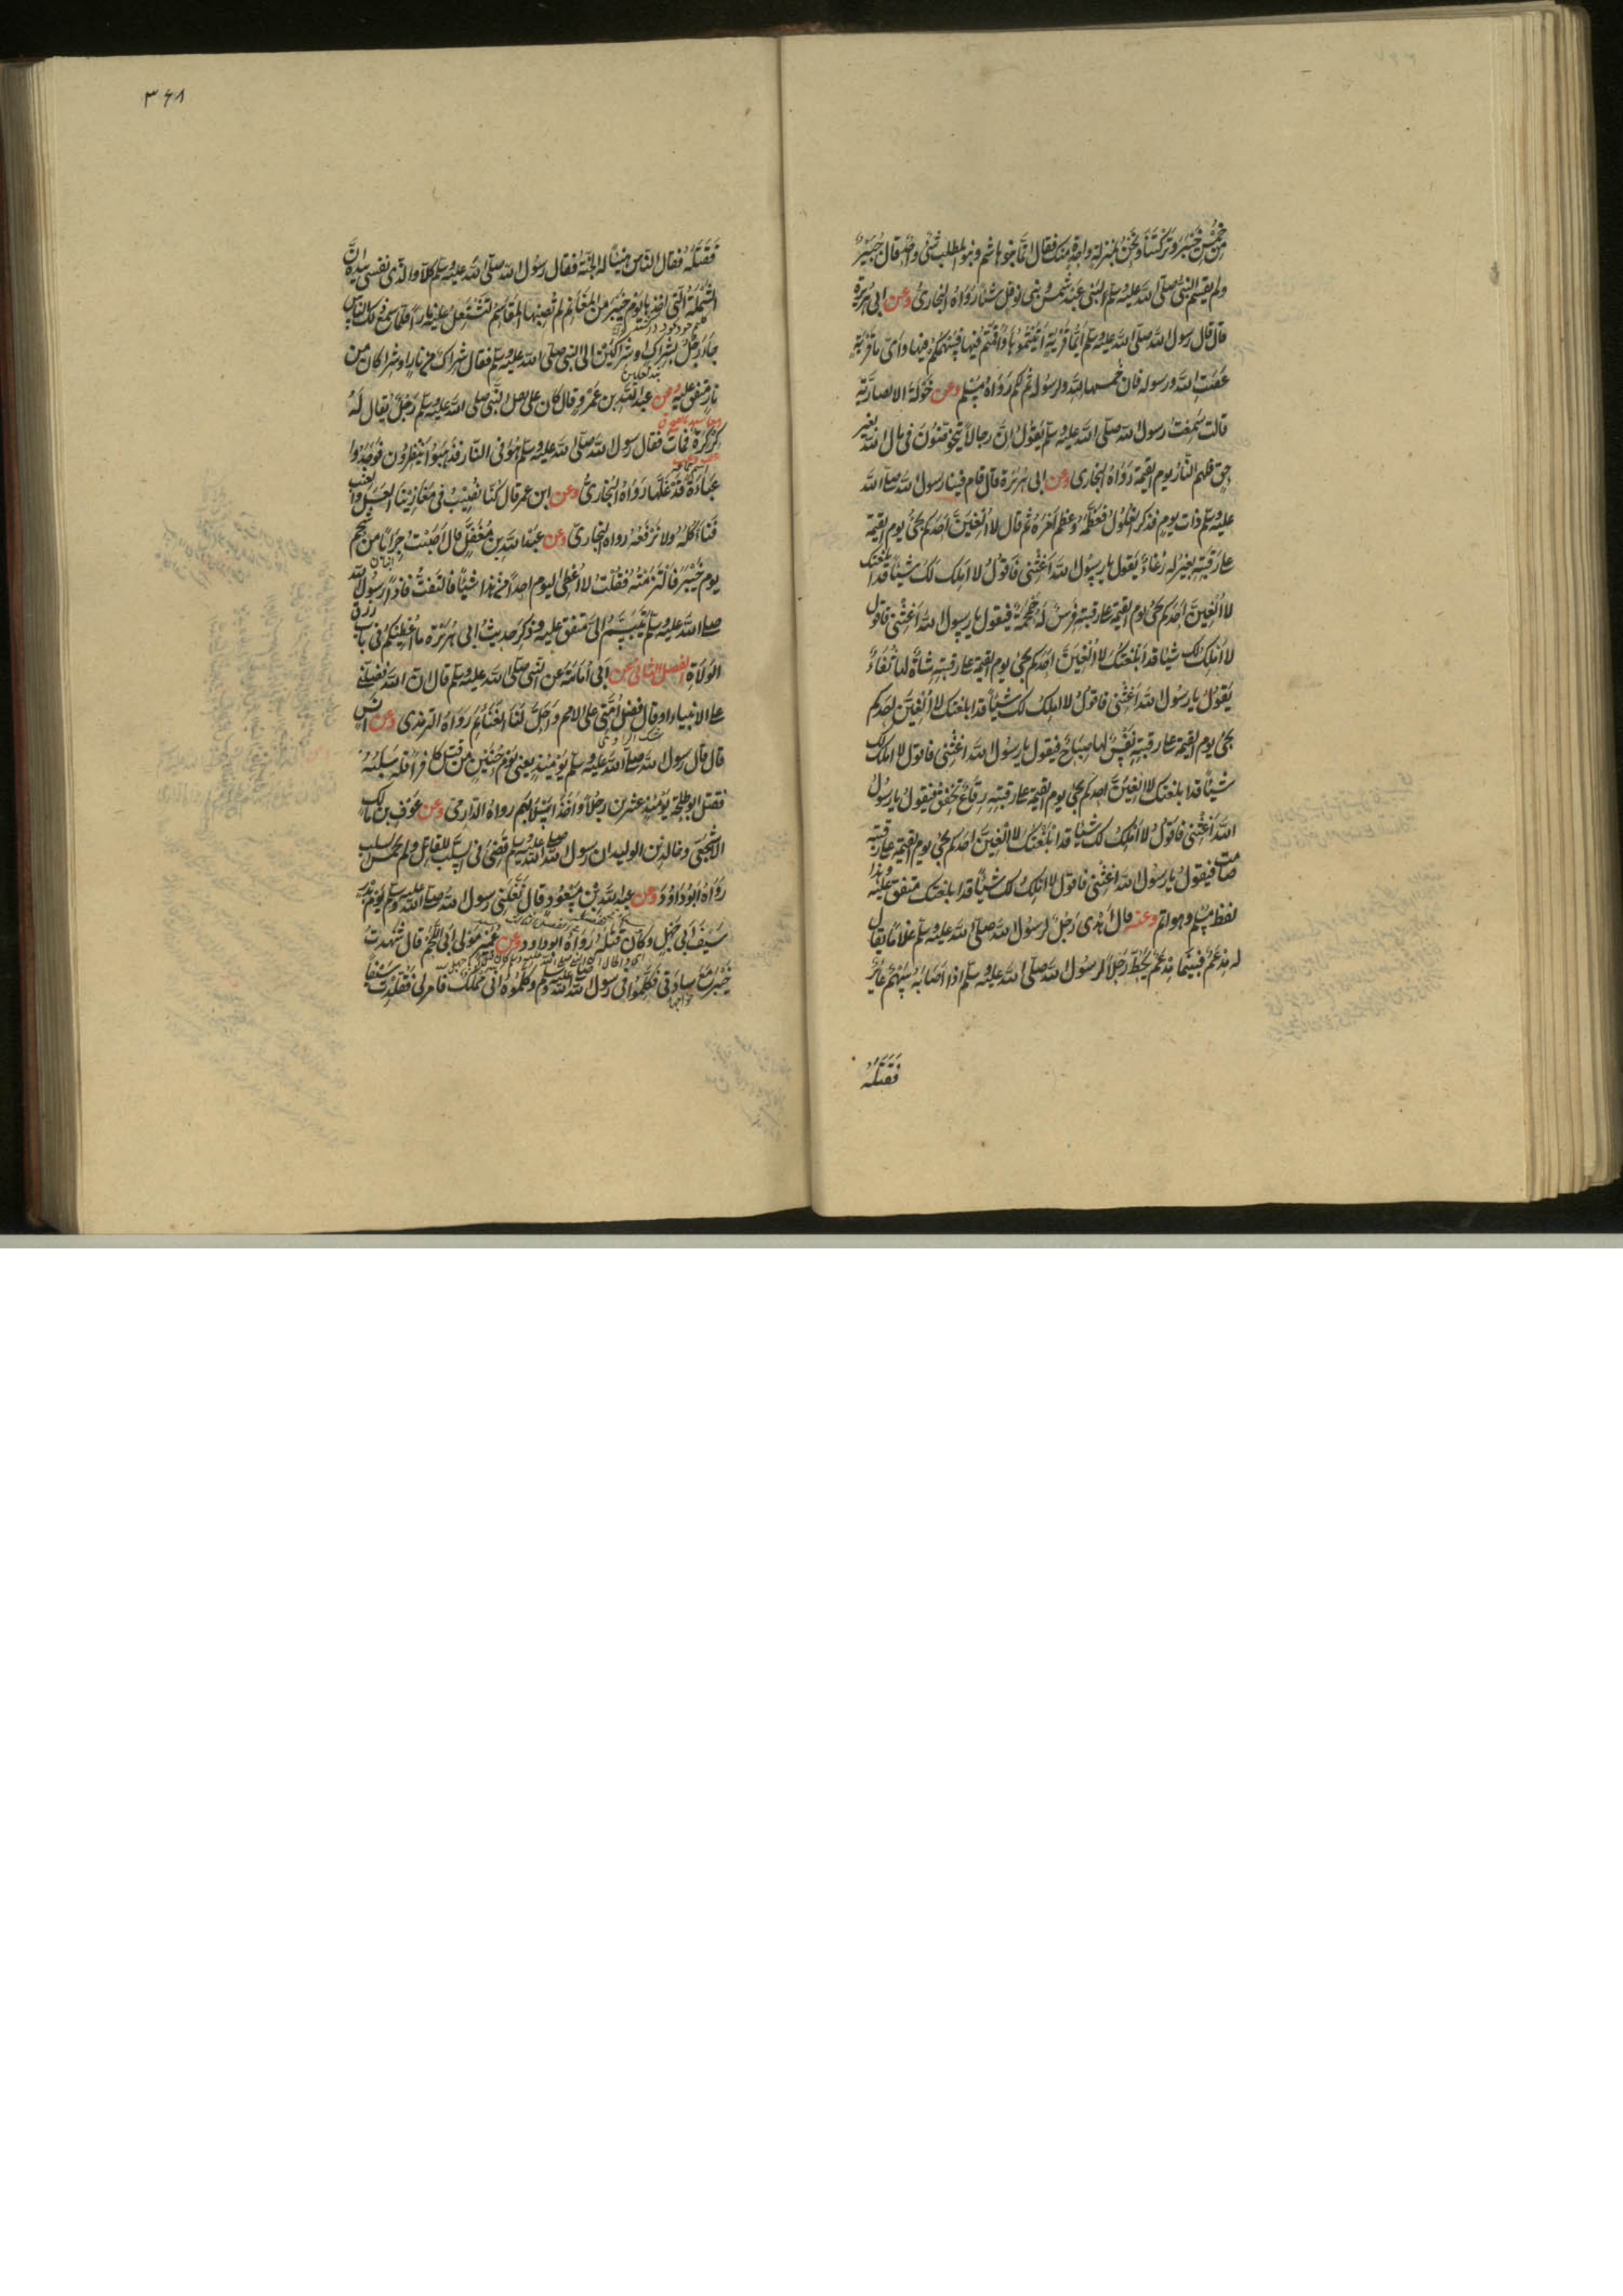 خُمُسِ خَيْبَرَ وَتَرَكْتَنَا وَنَحْنُ بِمَنْزِلَةٍ وَاحِدَةٍ مِنْكَ فقال إنما بنو هاشم وبنو المطلب شيء واحد قال جُبَيْرٌ
ولم يقسم النبي صلى الله عليه وسلم لبني عبد شمس وبني نوفل شيئا رواه البخاري وعن ابى هريرة
قال قال رسول الله صلى الله عليه وسلم ايما قرية اتيتموها واقمتم فيها فسهمكم فيها وايما قرية
عصت الله ورسوله فان خمسها لله ولرسوله ثم هى لكم رواه مسلم وعن خولة الانصارية
قالت سمعت رسول الله صلى الله عليه وسلم يقول ان رجالا يتخوضون فى مال الله بغير
حق فلهم النار يوم القيمة رواه البخارى وعن ابى هريرة قال قام فينا رسول الله صلى الله
عليه وسلم ذات يوم فذكر الغلول فعظمه وعظم امره ثم قال لا الفين احدكم يجئ يوم القيمة
على رقبته بعير له رغاء يقول يا رسول الله اغثنى فاقول لا املك لك شيئا قد ابلغتك
لا الفين احدكم يجئ يوم القيمة على رقبته فرس له حمحمة فيقول يا رسول الله اغثنى فاقول
لا املك لك شيئا قد ابلغتك لا الفين احدكم يجئ يوم القيمة على رقبته شاة لها ثغاء
يقول يا رسول الله اغثنى فاقول لا املك لك شيئا قد ابلغتك لا الفين احدكم
يجئ يوم القيمة على رقبته نفس لها صياح فيقول يا رسول الله اغثنى فاقول لا املك لك
شيئا قد ابلغتك لا الفين احدكم يجئ يوم القيمة على رقبته رقاع تخفق فيقول يا رسول
الله اغثنى فاقول لا املك لك شيئا قد ابلغتك لا الفين احدكم يجئ يوم القيمة على رقبته
صامت فيقول يا رسول الله اغثنى فاقول لا املك لك شيئا قد ابلغتك متفق عليه وهذا
لفظ مسلم وهو اتم وعنه قال اهدى رجل لرسول الله صلى الله عليه وسلم غلاما يقال
له مدعم فبينما مدعم يحط رحلا لرسول الله صلى الله عليه وسلم اذا اصابه سهم عائر
فقتله
٣٦٨
فقتله فقال الناس هنيئا له الجنة فقال رسول الله صلى الله عليه وسلم كلا والذى نفسى بيده ان
الشملة التى اخذها يوم خيبر من المغانم لم تصبها المقاسم لتشتعل عليه نارا فلما سمع ذلك الناس
جاء رجل بشراك او شراكين الى النبى صلى الله عليه وسلم فقال شراك من نار او شراكان من
نار متفق عليه وعن عبد الله بن عمرو قال كان على ثقل النبى صلى الله عليه وسلم رجل يقال له
كركرة فمات فقال رسول الله صلى الله عليه وسلم هو فى النار فذهبوا ينظرون فوجدوا
عباءة قد غلها رواه البخارى وعن ابن عمر قال كنا نصيب فى مغازينا العسل والعنب
فناكله ولا نرفعه رواه البخارى وعن عبد الله بن مغفل قال اصبت جرابا من شحم
يوم خيبر فالتزمته فقلت لا اعطى اليوم احدا من هذا شيئا فالتفت فاذا رسول الله
صلى الله عليه وسلم يتبسم الى متفق عليه وذكر حديث ابى هريرة ما اعطيكم فى باب رزق
الولاة الفصل الثانى عن ابى امامة عن النبى صلى الله عليه وسلم قال ان الله فضلنى
على الانبياء او قال فضل امتى على الامم واحل لنا الغنائم رواه الترمذى وعن انس
قال قال رسول الله صلى الله عليه وسلم يومئذ يعنى يوم حنين من قتل كافرا فله سلبه
فقتل ابو طلحة يومئذ عشرين رجلا واخذ اسلابهم رواه الدارمى وعن عوف بن مالك
الاشجعى وخالد بن الوليد ان رسول الله صلى الله عليه وسلم قضى فى السلب للقاتل ولم يخمس السلب
رواه ابو داود وعن عبد الله بن مسعود قال نفلنى رسول الله صلى الله عليه وسلم يوم بدر
سيف ابى جهل وكان قتله رواه ابو داود وعن عمير مولى ابى اللحم قال شهدت
خيبر مع سادتى فكلموا فى رسول الله صلى الله عليه وسلم وكلموه انى مملوك فامرنى فقلدت سيفا